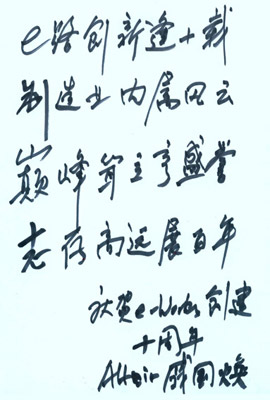 e路创新逢十载
制造业内属风云
巅峰耸立享盛誉
志存高远展百年
庆贺e-works创建
十周年
Altair 戚国焕